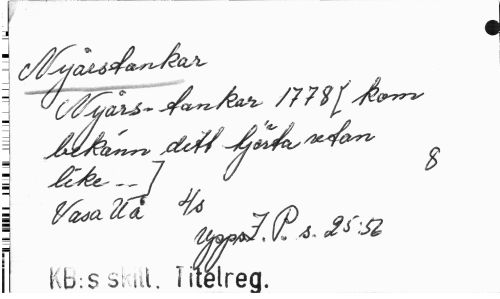 Nyårstankar
Nyårs-tankar 1778[kom
bekänn ditt hjärta utan
like --]
8
Vasa Uå 4/s
Upps. F. P. s. 25:56
KB:s skill. Titelreg.